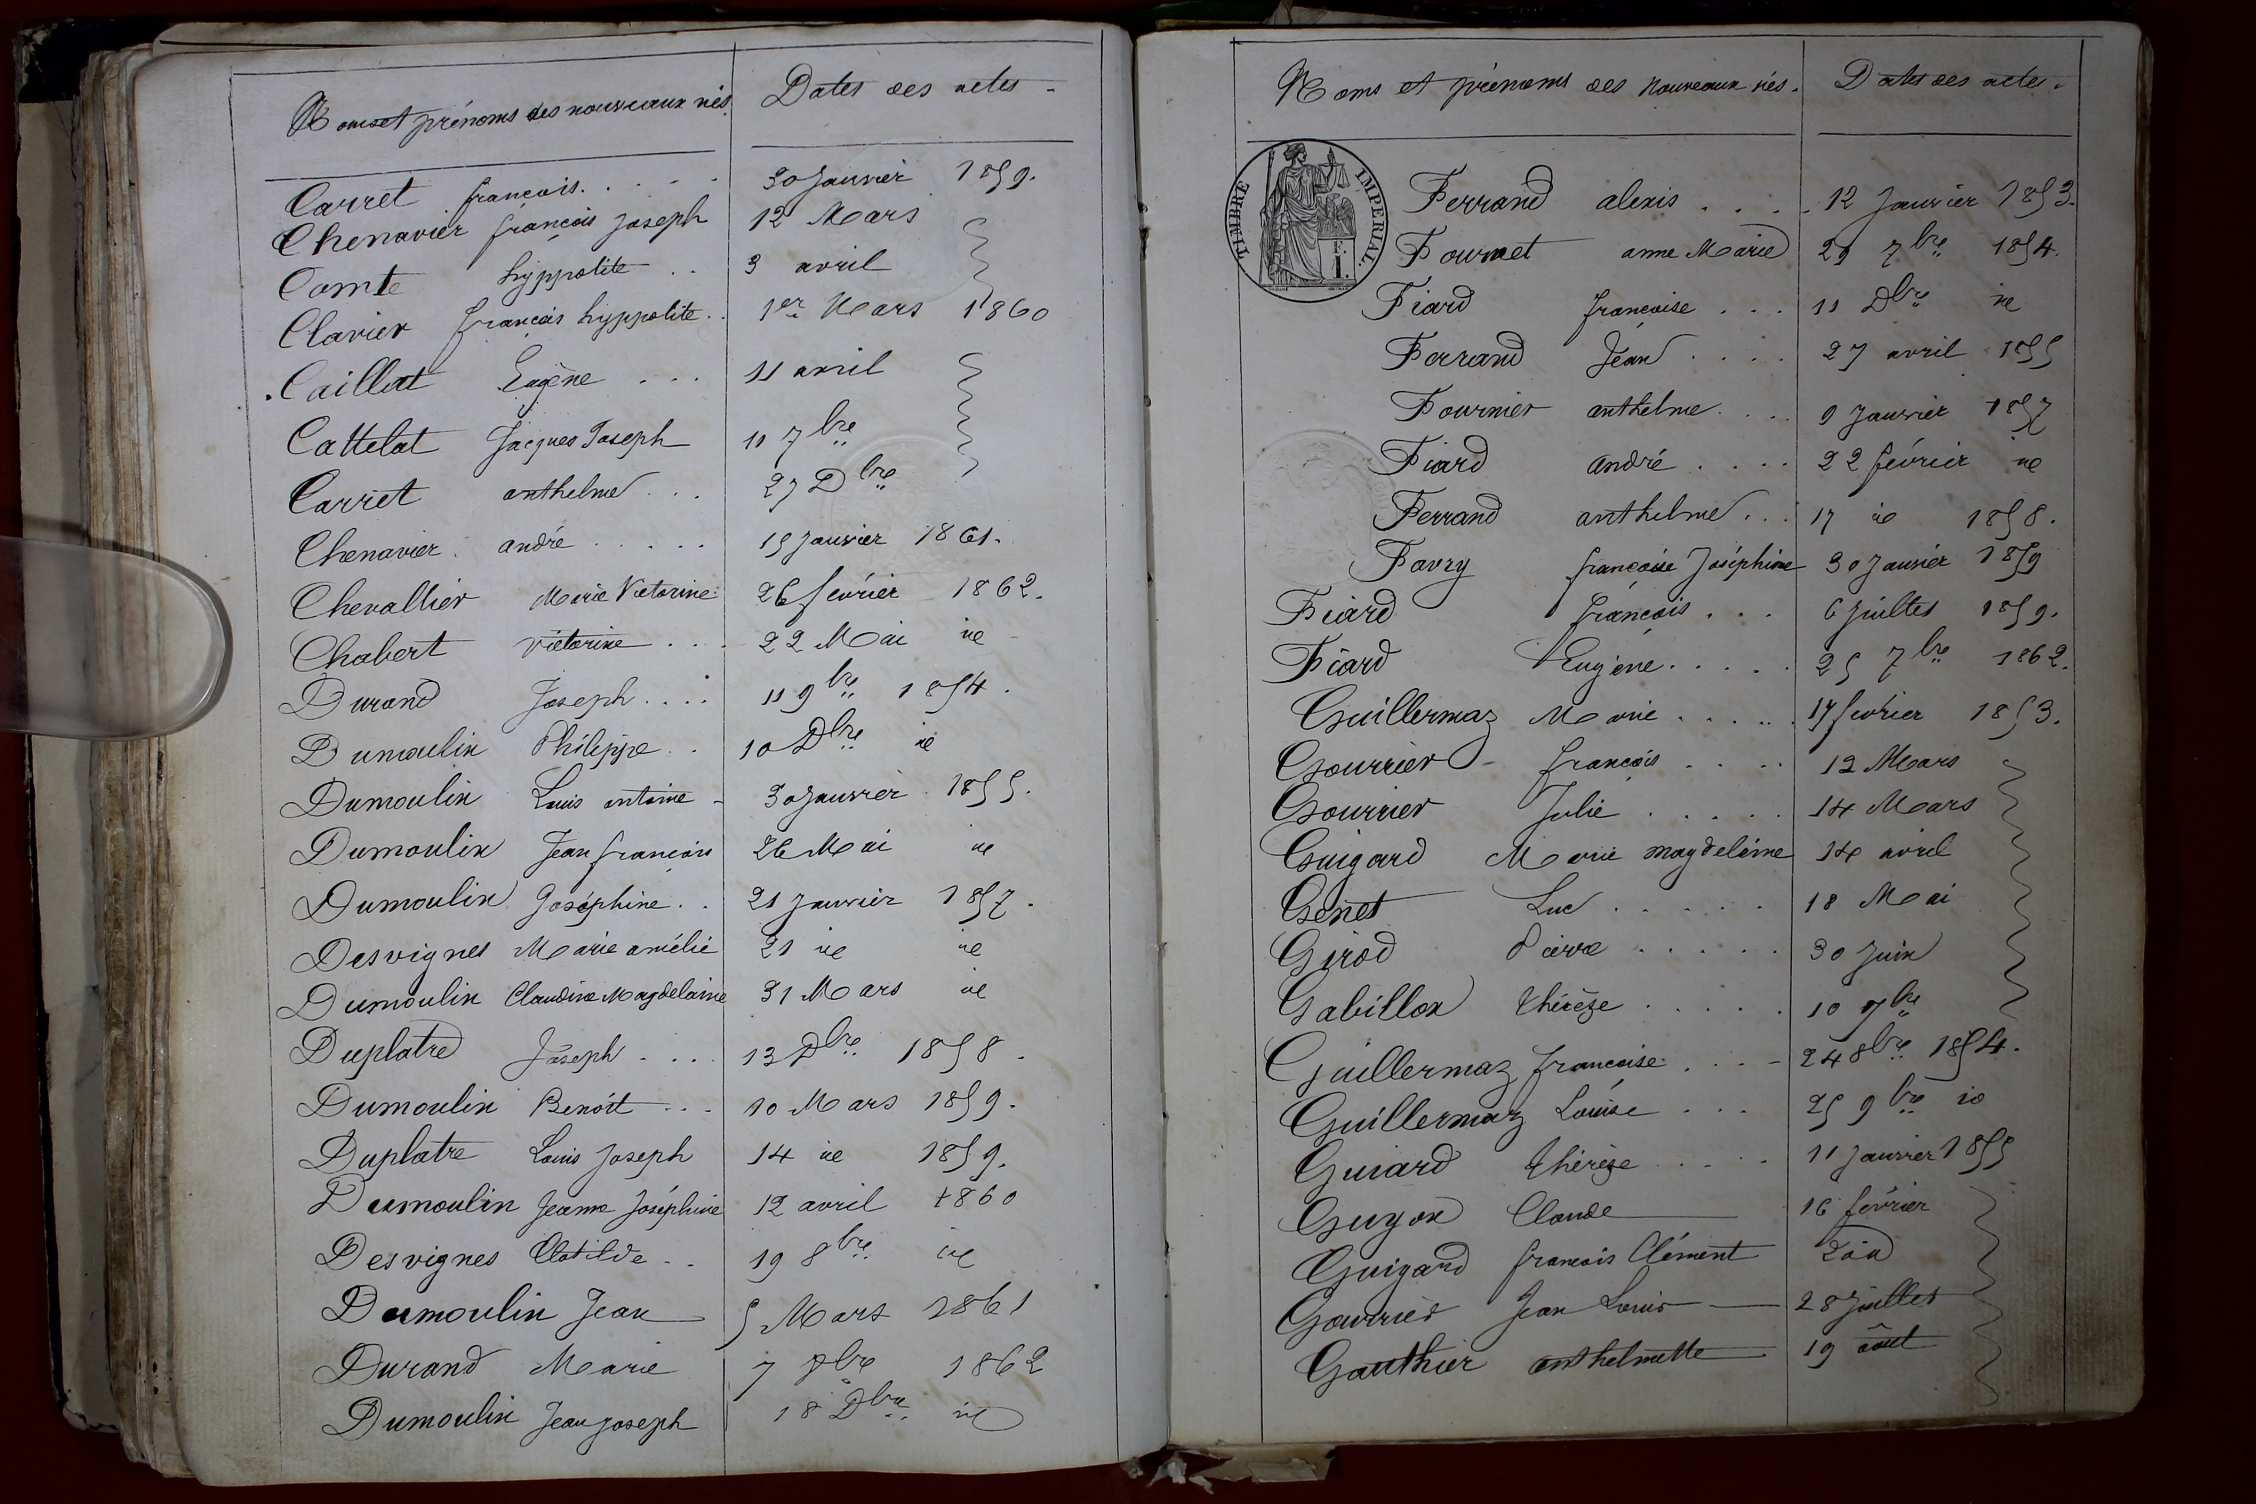 Noms et prénoms des nouveaux nés. Dates des actes.
Carret françois..... 30 Janvier 1859.
Chenavier françois Joseph 12 Mars
Comte hyppolite .. 3 avril
Clavier françois hyppolite.. 1er Mars 1860
Caillat Eugène ... 11 avril
Cattelat Jacques Joseph 11 7bre
Carret anthelme ... 27 Dbre
Chenavier. andré ..... 15 Janvier 1861.
Chevallier Marie Victorine 26 février 1862.
Chabert victorine ... 22 Mai id
Durand Joseph .... 11 9bre 1854.
Dumoulin Philippe .. 10 Dbre id
Dumoulin Louis antoine - 30 Janvier 1855.
Dumoulin Jean françois 26 Mai id
Dumoulin Joséphine .. 21 Janvier 1857.
Desvignes Marie amélie 21 id id
Dumoulin Claudine Magdelaine 31 Mars id
Duplatre Joseph .... 13 Dbre 1858.
Dumoulin Benoît ... 10 Mars 1859.
Duplatre Louis Joseph 14 id 1859.
Dumoulin Jeanne Joséphine 12 avril 1860
Desvignes Clotilde .. 19 8bre id
Dumoulin Jean 5 Mars 1861
Durand Marie 7 8bre 1862
Dumoulin Jean Joseph 18 Dbre id
Noms et prénoms des nouveaux nés. Dates des actes.
TIMBRE IMPERIAL.
F.
1.
Ferrand alexis .... 12 Janvier 1853.
Fournet anne Marie 29 7bre 1854.
Fiard françoise ... 11 Dbre id
Ferrand Jean .... 27 avril 1855
Fournier anthelme ... 9 Janvier 1857
Fiard andré .... 22 février id
Ferrand anthelme ... 17 id 1858.
Favry françoise Joséphine 30 Janvier 1859
Fiard françois ... 6 Juillet 1859.
Fiard Eugène ..... 25 7bre 1862.
Guillermaz Marie ..... 17 février 1853.
Gourrier - françois .... 12 Mars
Gourrier Julie ..... 14 Mars
Guigard Marie Magdeleine 14 avril
Genet Luc ..... 18 Mai
Girod Pierre ..... 30 Juin
Gabillon thérèze ..... 10 7bre
Guillermaz françoise .... 24 8bre 1854.
Guillermaz Louise ... 25 9bre id
Guiard thérèze ..... 11 Janvier 1855
Guyon Claude 16 février
Guigard françois Clément 2 id
Gourrier Jean Louis 28 Juillet
Gauthier anthelmette 19 août